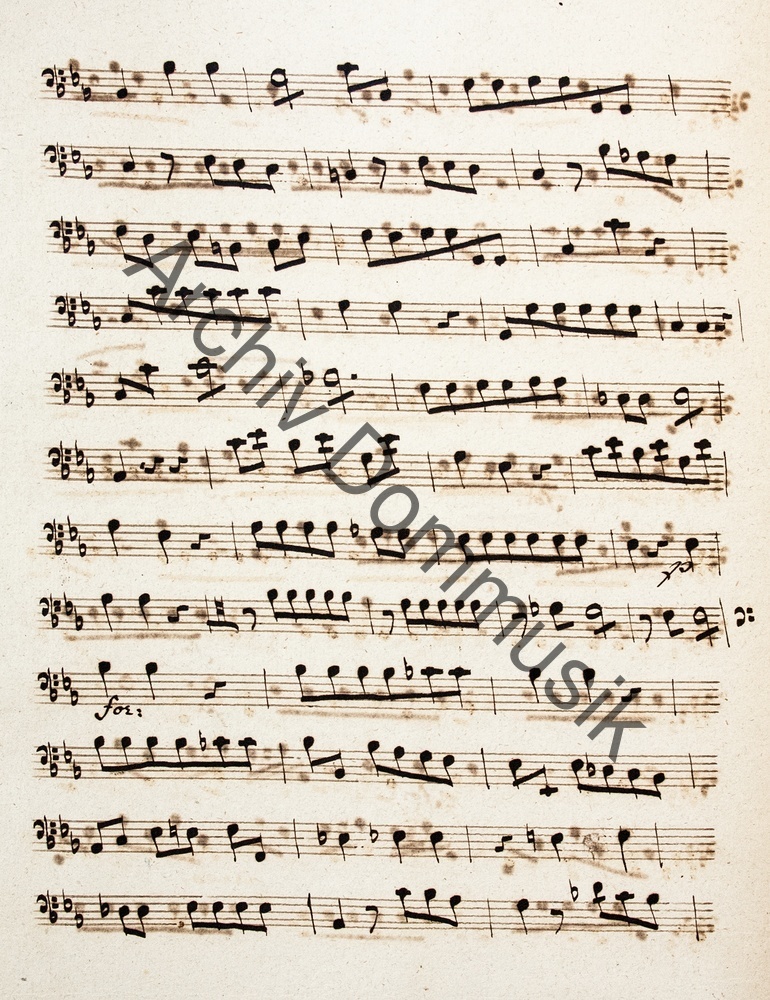 Archiv Dommusik
p
for: